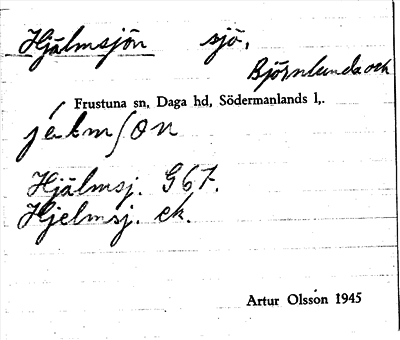 Hjälmsjön sjö,
Björnlunda och
Frustuna sn, Daga hd, Södermanlands l,.
Hjälmsj. G 67.
Hjelmsj. ek.
Artur Olsson 1945